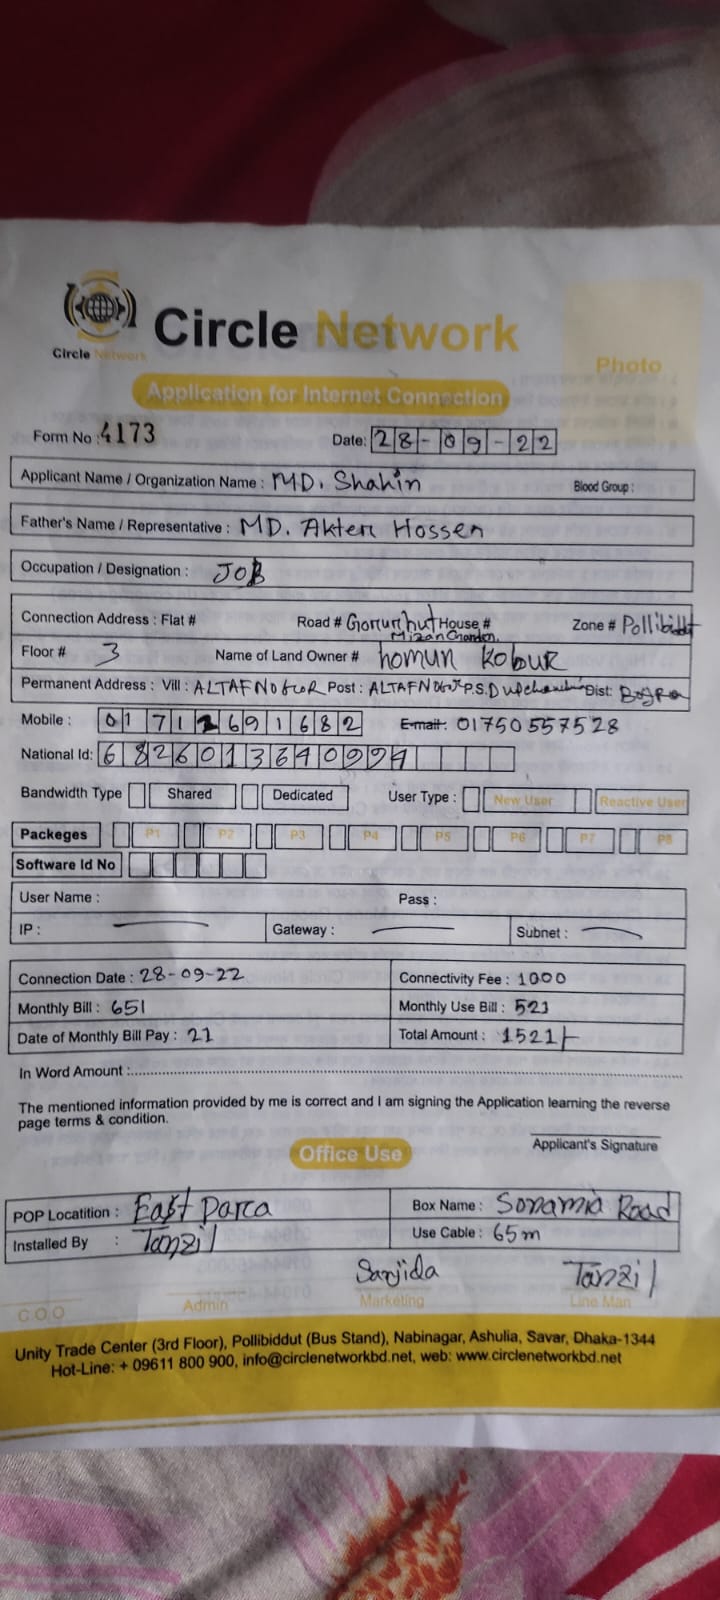 Circle Network
Circle Network
Photo
Application for Internet Connection
Form No : 4173
Date: 28-09-22
Applicant Name / Organization Name : MD. Shahin Blood Group :
Father's Name / Representative : MD. Akter Hossen
Occupation / Designation : JOB
Connection Address : Flat # Road # Gorurhut House # Zone # Pollibiddut
Floor # 3 Name of Land Owner # homun kobur
Permanent Address : Vill : ALTAFNOGOR Post : ALTAFNOGOR P.S. Dupchanchia Dist: Bogra
Mobile : 01712691682 E-mail: 01750557528
National Id:
Bandwidth Type Shared Dedicated User Type : New User Reactive User
Packeges P1 P2 P3 P4 P5 P6 P7 P8
Software Id No
User Name : Pass :
IP : Gateway : Subnet :
Connection Date : 28-09-22 Connectivity Fee : 1000
Monthly Bill : 651 Monthly Use Bill : 521
Date of Monthly Bill Pay : 21 Total Amount : 1521/-
In Word Amount :
The mentioned information provided by me is correct and I am signing the Application learning the reverse
page terms & condition.
Applicant's Signature
Office Use
POP Locatition : East Parca Box Name : Sonamia Road
Installed By : Tanzil Use Cable : 65m
Sanjida Tanzil
C.O.O Admin Marketing Line Man
Unity Trade Center (3rd Floor), Pollibiddut (Bus Stand), Nabinagar, Ashulia, Savar, Dhaka-1344
Hot-Line: + 09611 800 900, info@circlenetworkbd.net, web: www.circlenetworkbd.net